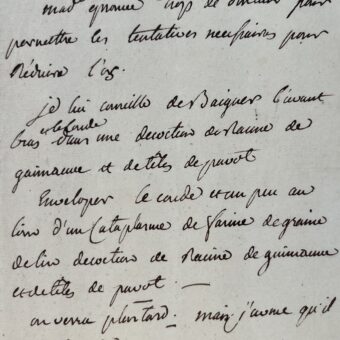 trop de douleur pour
permettre les tentatives necessaires pour
Réduire l'os.
je lui conseille de Baigner l'avant
et le coude
bras dans une decoction de Racine de
guimauve et de têtes de pavot
Enveloper le coude et un peu au
d'un Cataplasme de farine de graine
de lin decoction de Racine de guimauve
et de têtes de pavot. —
on verra plus tard. mais j'avoue qu'il